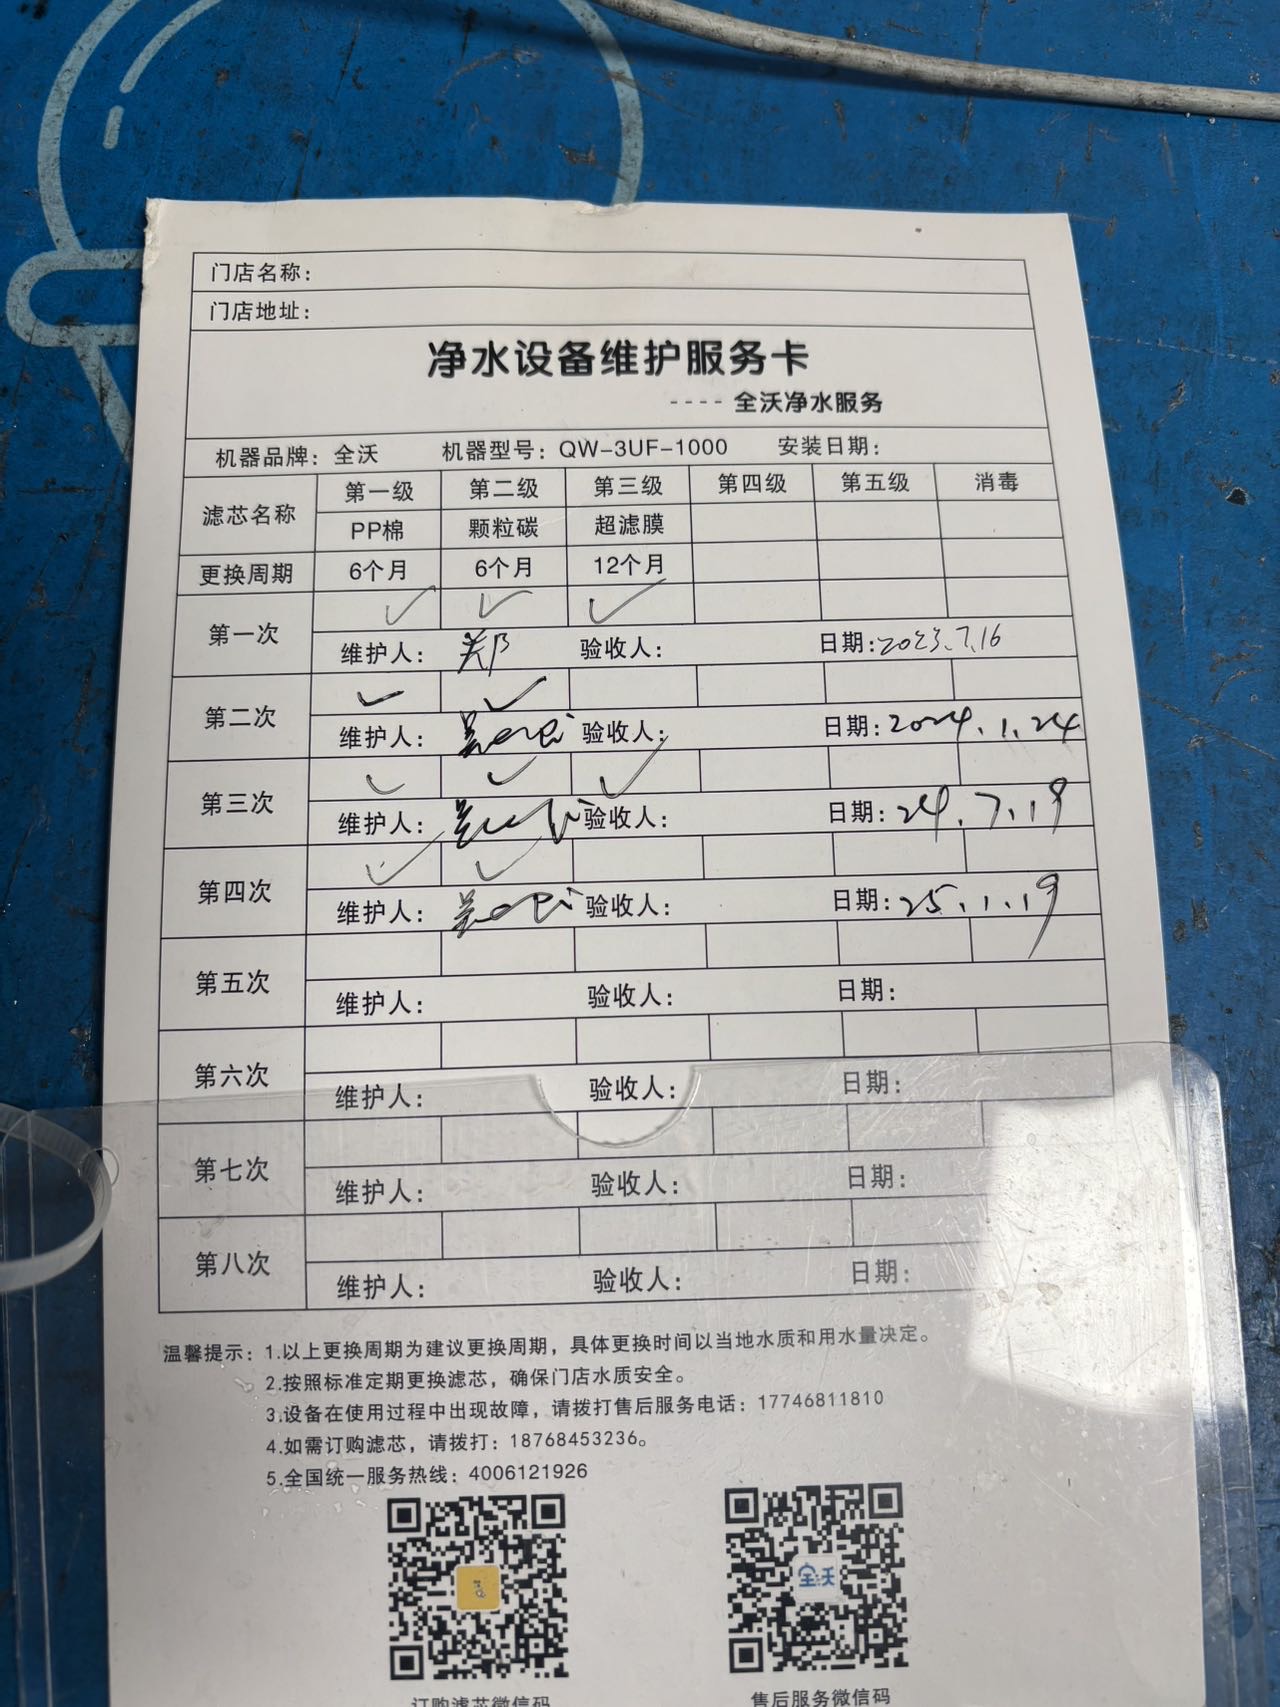 门店名称：
门店地址：
净水设备维护服务卡
---- 全沃净水服务
机器品牌：全沃 机器型号：QW-3UF-1000 安装日期：
滤芯名称 第一级 第二级 第三级 第四级 第五级 消毒
PP棉 颗粒碳 超滤膜
更换周期 6个月 6个月 12个月
第一次 ✓ ✓ ✓
维护人：郑 验收人： 日期：2023.7.16
第二次 ✓ ✓
维护人： 验收人： 日期：2024.1.24
第三次 ✓ ✓ ✓
维护人： 验收人： 日期：24.7.19
第四次 ✓ ✓
维护人： 验收人： 日期：25.1.19
第五次
维护人： 验收人： 日期：
第六次
维护人： 验收人： 日期：
第七次
维护人： 验收人： 日期：
第八次
维护人： 验收人： 日期：
温馨提示：1.以上更换周期为建议更换周期，具体更换时间以当地水质和用水量决定。
2.按照标准定期更换滤芯，确保门店水质安全。
3.设备在使用过程中出现故障，请拨打售后服务电话：17746811810
4.如需订购滤芯，请拨打：18768453236。
5.全国统一服务热线：4006121926
全沃
订购滤芯微信码 售后服务微信码